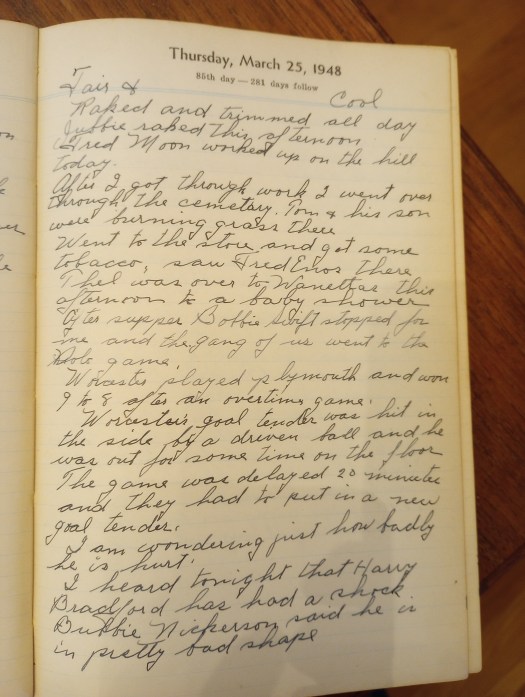 Thursday, March 25, 1948
85th day — 281 days follow
Fair & Cool
Raked and trimmed all day
Bubbie raked this afternoon
Fred Moon worked up on the hill
today.
After I got through work I went over
through the cemetary. Tom & his son
were burning grass there
Went to the store and got some
tobacco, saw Fred Enos there
Thel was over to Wanettas this
afternoon to a baby shower
After supper Bobbie Swift stopped for
me and the gang of us went to the
Polo game.
Worcester played plymouth and won
9 to 8 after an overtime game.
Worcester's goal tender was hit in
the side by a driven ball and he
was out for some time on the floor
The game was delayed 20 minutes
and they had to put in a new
goal tender.
I am wondering just how badly
he is hurt.
I heard tonight that Harry
Bradford has had a shock
Bubbie Nickerson said he is
in pretty bad shape